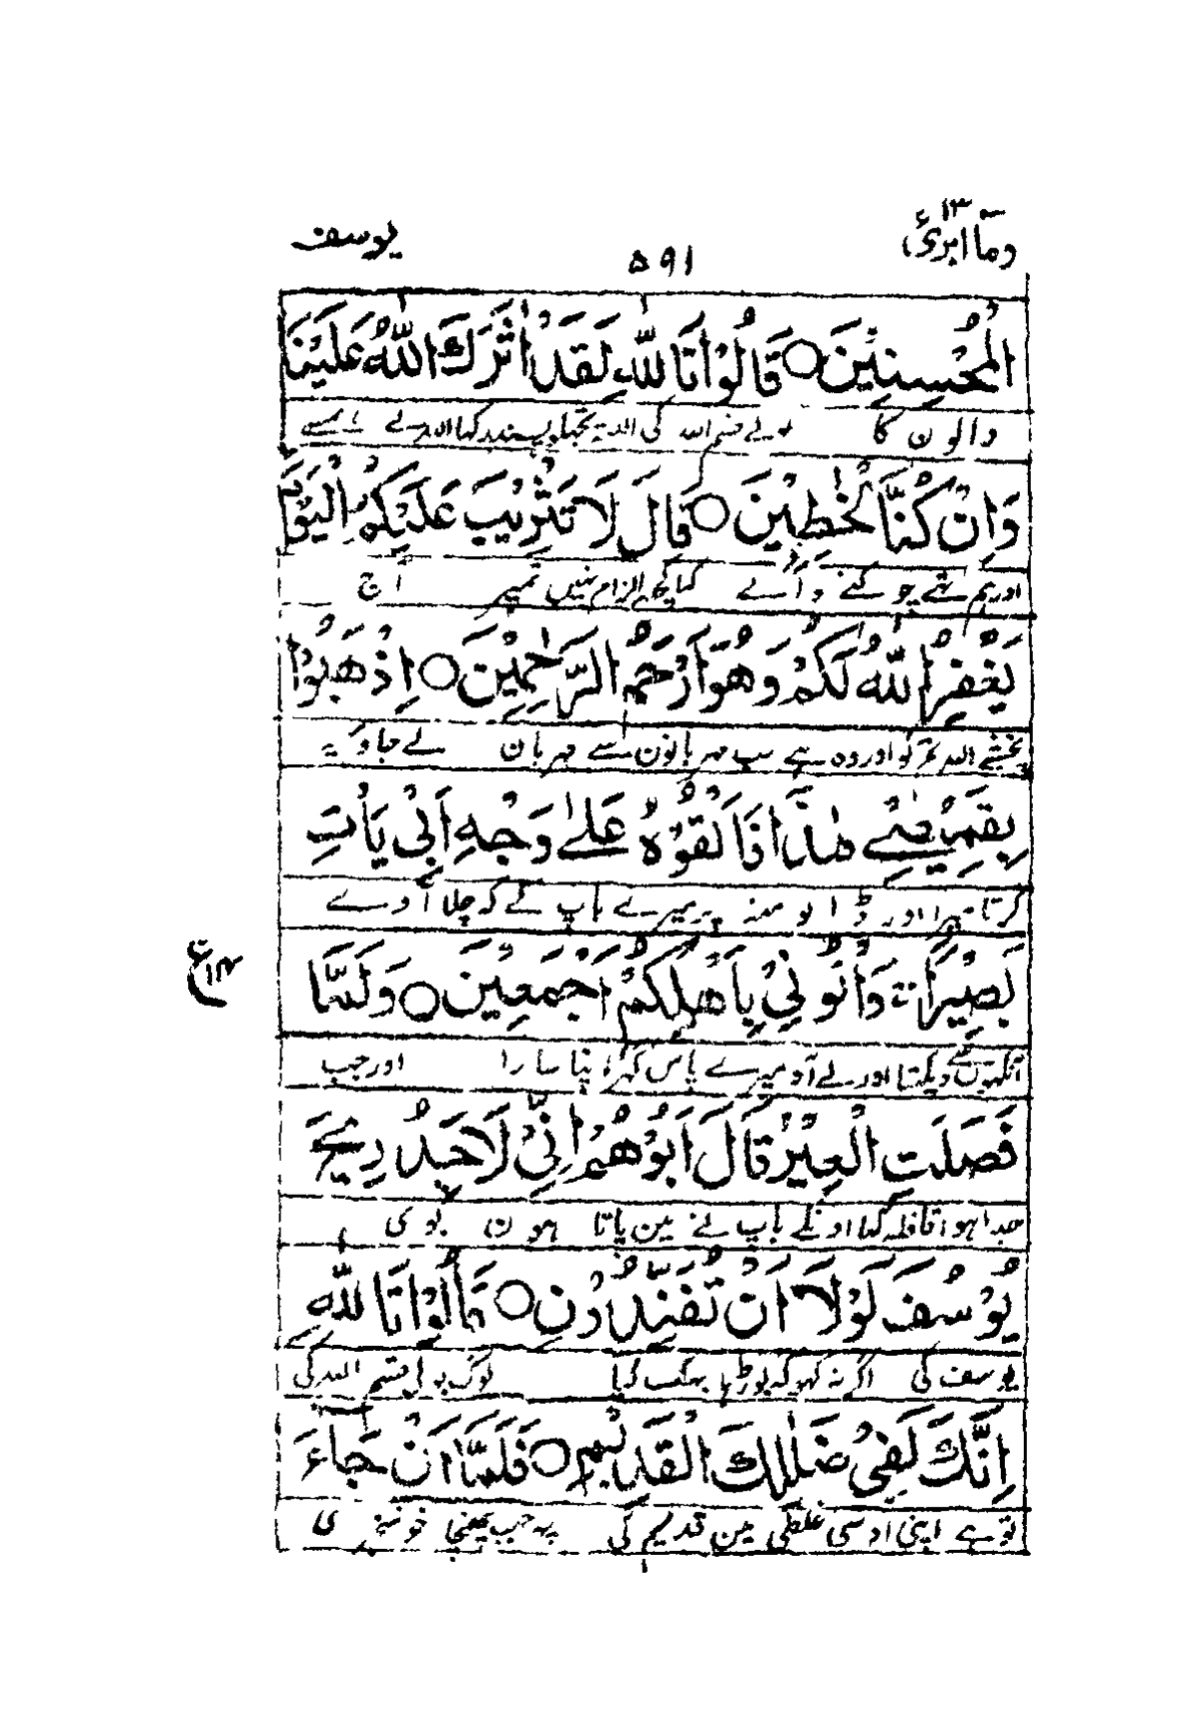 وما ابرئ ١٣
٥٩١
يوسف
الْمُحْسِنِيْنَ ○ قَالُوْا تَاللّٰهِ لَقَدْ اٰثَرَكَ اللّٰهُ عَلَيْنَا
والون کا بولے قسم اللہ کی البتہ تجہکو پسند کیا اللہ نے ہمسے
وَاِنْ كُنَّا لَخٰطِئِيْنَ ○ قَالَ لَا تَثْرِيْبَ عَلَيْكُمُ الْيَوْمَ
اور ہم تہے چوکنے والے کہا کچھ الزام نہیں تمپر آج
يَغْفِرُ اللّٰهُ لَكُمْ وَهُوَ اَرْحَمُ الرّٰحِمِيْنَ ○ اِذْهَبُوْا
بخشے اللہ تمکو اور وہ ہے سب مہربانون سے مہربان لے جاو یہ
بِقَمِيْصِيْ هٰذَا فَاَلْقُوْهُ عَلٰى وَجْهِ اَبِيْ يَاْتِ
کرتا میرا اور ڈالو منہ پر میرے باپ کے کہ چلا آوے
بَصِيْرًا وَاْتُوْنِيْ بِاَهْلِكُمْ اَجْمَعِيْنَ ○ وَلَمَّا
ع
آنکہون سے دیکہتا اور لے آو میرے پاس گہر اپنا سارا اور جب
فَصَلَتِ الْعِيْرُ قَالَ اَبُوْهُمْ اِنِّيْ لَاَجِدُ رِيْحَ
جدا ہوا قافلہ کہا اونکے باپ نے مین پاتا ہون بوی
يُوْسُفَ لَوْلَا اَنْ تُفَنِّدُوْنِ ○ قَالُوْا تَاللّٰهِ
یوسف کی اگر نہ کہو کہ بوڑہا بہک گیا لوگ بولے قسم اللہ کی
اِنَّكَ لَفِيْ ضَلٰلِكَ الْقَدِيْمِ ○ فَلَمَّا اَنْ جَاءَ
تو ہے اپنی اوسی غلطی مین قدیم کی پہر جب پہنچا خوشخبری